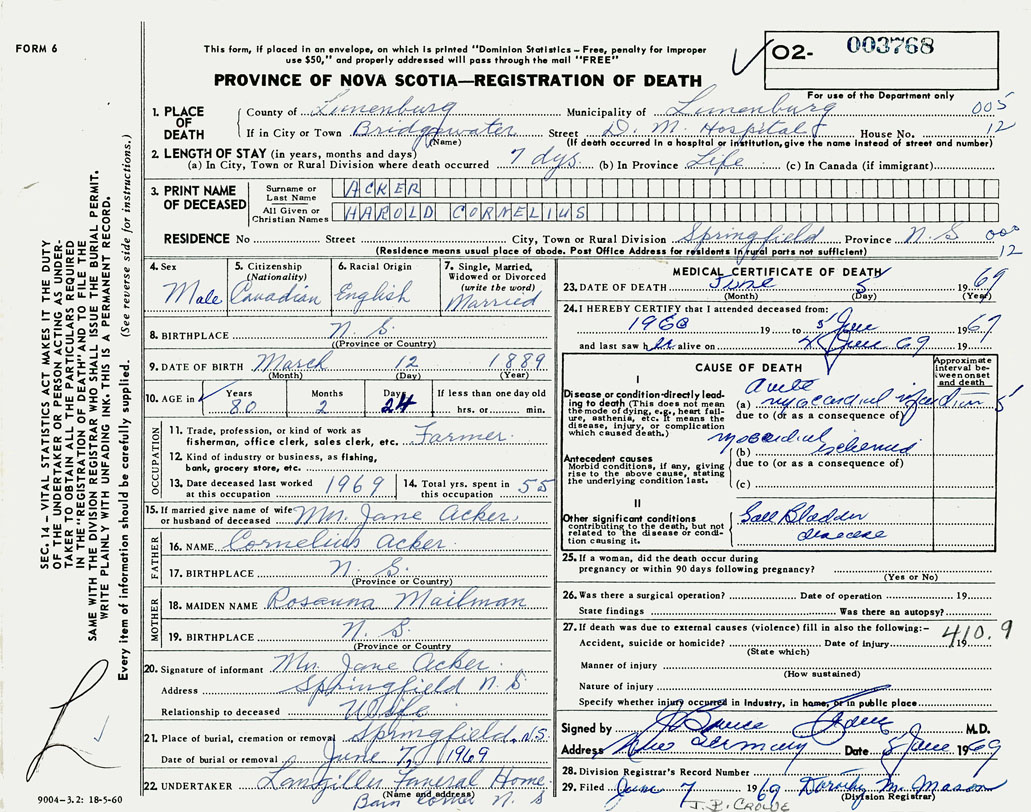 FORM 6
This form, if placed in an envelope, on which is printed "Dominion Statistics – Free, penalty for improper
use $50," and properly addressed will pass through the mail "FREE"
PROVINCE OF NOVA SCOTIA—REGISTRATION OF DEATH
02- 003768
For use of the Department only
1. PLACE OF DEATH
County of Lunenburg Municipality of Lunenburg 005
If in City or Town Bridgewater Street D. M. Hospital House No. 12
(Name) (If death occurred in a hospital or institution, give the name instead of street and number)
2. LENGTH OF STAY (in years, months and days)
(a) In City, Town or Rural Division where death occurred 7 dys. (b) In Province Life (c) In Canada (if immigrant)
3. PRINT NAME OF DECEASED
Surname or Last Name ACKER
All Given or Christian Names HAROLD CORNELIUS
RESIDENCE No Street City, Town or Rural Division Springfield Province N.S
(Residence means usual place of abode. Post Office Address for residents in rural parts not sufficient) 12
4. Sex Male
5. Citizenship (Nationality) Canadian
6. Racial Origin English
7. Single, Married, Widowed or Divorced (write the word) Married
8. BIRTHPLACE N. S.
(Province or Country)
9. DATE OF BIRTH March 12 1889
(Month) (Day) (Year)
10. AGE in Years Months Days If less than one day old
80 2 24 hrs. or min.
OCCUPATION
11. Trade, profession, or kind of work as
fisherman, office clerk, sales clerk, etc. Farmer.
12. Kind of industry or business, as fishing,
bank, grocery store, etc.
13. Date deceased last worked at this occupation 1969
14. Total yrs. spent in this occupation 55
15. If married give name of wife
or husband of deceased Mrs. Jane Acker.
FATHER
16. NAME Cornelius Acker.
17. BIRTHPLACE N. S.
(Province or Country)
MOTHER
18. MAIDEN NAME Rosanna Mailman
19. BIRTHPLACE N. S.
(Province or Country)
20. Signature of informant Mrs. Jane Acker.
Address Springfield N. S
Relationship to deceased Wife
21. Place of burial, cremation or removal Springfield, N.S.
Date of burial or removal June 7, 1969
22. UNDERTAKER Funeral Home
(Name and address)
N. S
MEDICAL CERTIFICATE OF DEATH
23. DATE OF DEATH June 5 1969
(Month) (Day) (Year)
24. I HEREBY CERTIFY that I attended deceased from:
19 to 5 June 19
and last saw h alive on June 69
CAUSE OF DEATH
Approximate interval between onset and death
I
Disease or condition directly leading to death (This does not mean the mode of dying, e.g., heart failure, asthenia, etc. It means the disease, injury, or complication which caused death.)
acute
(a) myocardial infarction
due to (or as a consequence of)
myocardial
(b) ischemia
due to (or as a consequence of)
(c)
Antecedent causes
Morbid conditions, if any, giving rise to the above cause, stating the underlying condition last.
II
Other significant conditions
contributing to the death, but not related to the disease or condition causing it.
Gall Bladder
disease
25. If a woman, did the death occur during
pregnancy or within 90 days following pregnancy?
(Yes or No)
26. Was there a surgical operation? Date of operation 19
State findings Was there an autopsy?
27. If death was due to external causes (violence) fill in also the following:– 410.9
Accident, suicide or homicide? Date of injury 19
(State which)
Manner of injury
(How sustained)
Nature of injury
Specify whether injury occurred in Industry, in home, or in public place
Signed by M.D.
Address New Germany Date 5 June 1969
28. Division Registrar's Record Number
29. Filed June 7 1969 Dorothy M. Mason
(Division Registrar)
J. B. CROWE
SEC. 114 – VITAL STATISTICS ACT MAKES IT THE DUTY
OF THE UNDERTAKER OR PERSON ACTING AS UNDER-
TAKER TO OBTAIN ALL THE PARTICULARS REQUIRED
IN THE "REGISTRATION OF DEATH" AND TO FILE THE
SAME WITH THE DIVISION REGISTRAR WHO SHALL ISSUE THE BURIAL PERMIT.
WRITE PLAINLY WITH UNFADING INK. THIS IS A PERMANENT RECORD.
Every item of information should be carefully supplied. (See reverse side for instructions.)
9004–3.2: 18-5-60